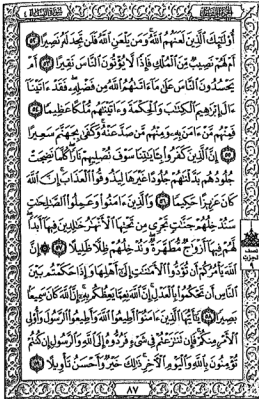 أُوْلَٰٓئِكَ ٱلَّذِينَ لَعَنَهُمُ ٱللَّهُ وَمَن يَلْعَنِ ٱللَّهُ فَلَن تَجِدَ لَهُۥ نَصِيرًا ٥٢
أَمْ لَهُمْ نَصِيبٌ مِّنَ ٱلْمُلْكِ فَإِذًا لَّا يُؤْتُونَ ٱلنَّاسَ نَقِيرًا ٥٣ أَمْ
يَحْسُدُونَ ٱلنَّاسَ عَلَىٰ مَآ ءَاتَىٰهُمُ ٱللَّهُ مِن فَضْلِهِۦ فَقَدْ ءَاتَيْنَآ
ءَالَ إِبْرَٰهِيمَ ٱلْكِتَٰبَ وَٱلْحِكْمَةَ وَءَاتَيْنَٰهُم مُّلْكًا عَظِيمًا ٥٤
فَمِنْهُم مَّنْ ءَامَنَ بِهِۦ وَمِنْهُم مَّن صَدَّ عَنْهُ وَكَفَىٰ بِجَهَنَّمَ سَعِيرًا
٥٥ إِنَّ ٱلَّذِينَ كَفَرُوا۟ بِـَٔايَٰتِنَا سَوْفَ نُصْلِيهِمْ نَارًا كُلَّمَا نَضِجَتْ
جُلُودُهُم بَدَّلْنَٰهُمْ جُلُودًا غَيْرَهَا لِيَذُوقُوا۟ ٱلْعَذَابَ إِنَّ ٱللَّهَ
كَانَ عَزِيزًا حَكِيمًا ٥٦ وَٱلَّذِينَ ءَامَنُوا۟ وَعَمِلُوا۟ ٱلصَّٰلِحَٰتِ
سَنُدْخِلُهُمْ جَنَّٰتٍ تَجْرِى مِن تَحْتِهَا ٱلْأَنْهَٰرُ خَٰلِدِينَ فِيهَآ أَبَدًا
لَّهُمْ فِيهَآ أَزْوَٰجٌ مُّطَهَّرَةٌ وَنُدْخِلُهُمْ ظِلًّا ظَلِيلًا ٥٧ إِنَّ
ٱللَّهَ يَأْمُرُكُمْ أَن تُؤَدُّوا۟ ٱلْأَمَٰنَٰتِ إِلَىٰٓ أَهْلِهَا وَإِذَا حَكَمْتُم بَيْنَ
ٱلنَّاسِ أَن تَحْكُمُوا۟ بِٱلْعَدْلِ إِنَّ ٱللَّهَ نِعِمَّا يَعِظُكُم بِهِۦٓ إِنَّ ٱللَّهَ كَانَ سَمِيعًۢا
بَصِيرًا ٥٨ يَٰٓأَيُّهَا ٱلَّذِينَ ءَامَنُوٓا۟ أَطِيعُوا۟ ٱللَّهَ وَأَطِيعُوا۟ ٱلرَّسُولَ وَأُو۟لِى
ٱلْأَمْرِ مِنكُمْ فَإِن تَنَٰزَعْتُمْ فِى شَىْءٍ فَرُدُّوهُ إِلَى ٱللَّهِ وَٱلرَّسُولِ إِن كُنتُمْ
تُؤْمِنُونَ بِٱللَّهِ وَٱلْيَوْمِ ٱلْءَاخِرِ ذَٰلِكَ خَيْرٌ وَأَحْسَنُ تَأْوِيلًا ٥٩
٨٧